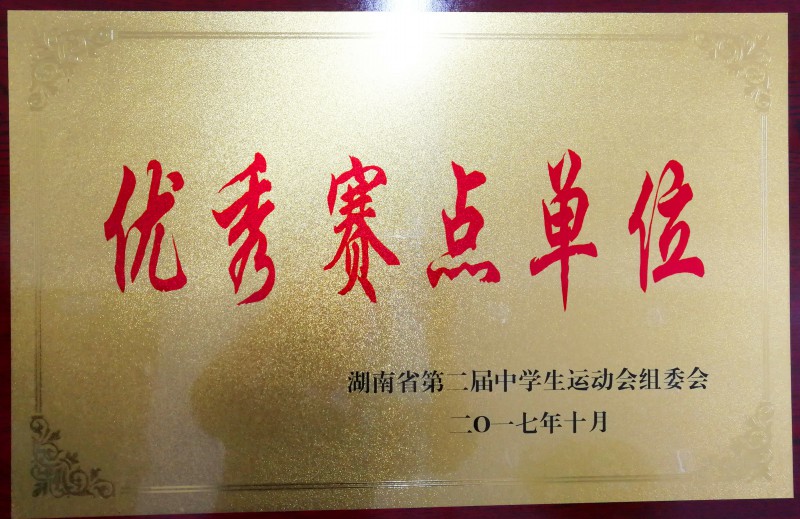 优秀赛点单位
湖南省第二届中学生运动会组委会
二O一七年十月